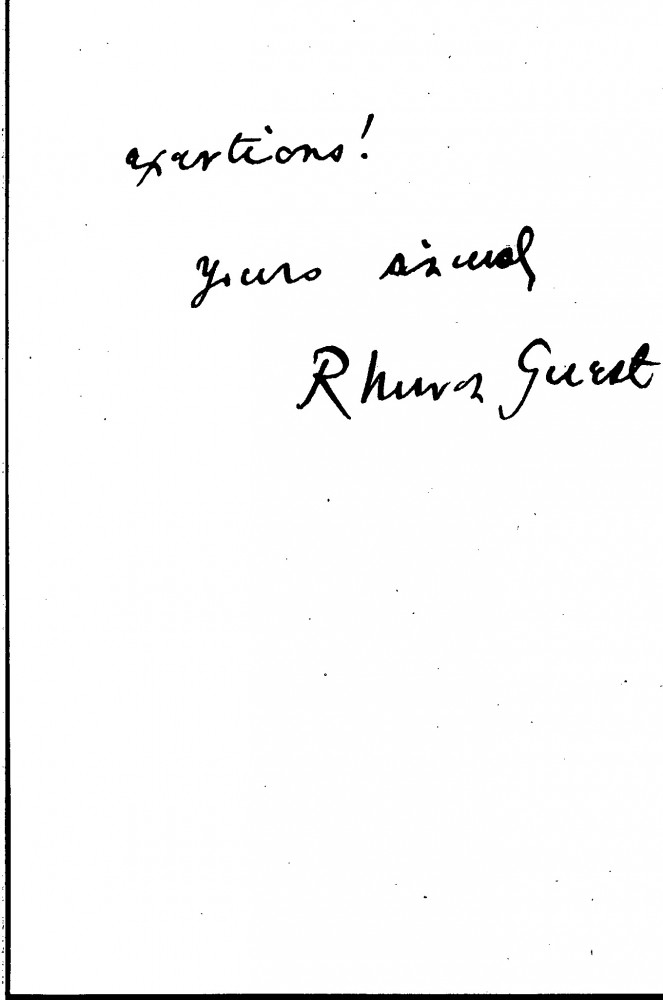 exertions!
Yours sincerely
Rhuvon Guest